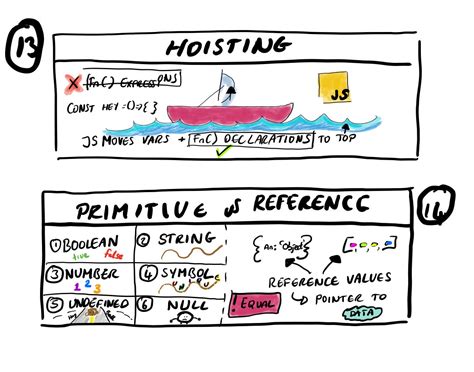 13
HOISTING
X Fn() EXPRESSIONS
CONST HEY = () => { }
JS
JS MOVES VARS + Fn() DECLARATIONS TO TOP
14
PRIMITIVE vs REFERENCE
1 BOOLEAN
true false
2 STRING
3 NUMBER
1 2 3
4 SYMBOL
5 UNDEFINED
6 NULL
{An: "Object"}
[ , , , ]
REFERENCE VALUES
POINTER TO
DATA
! EQUAL